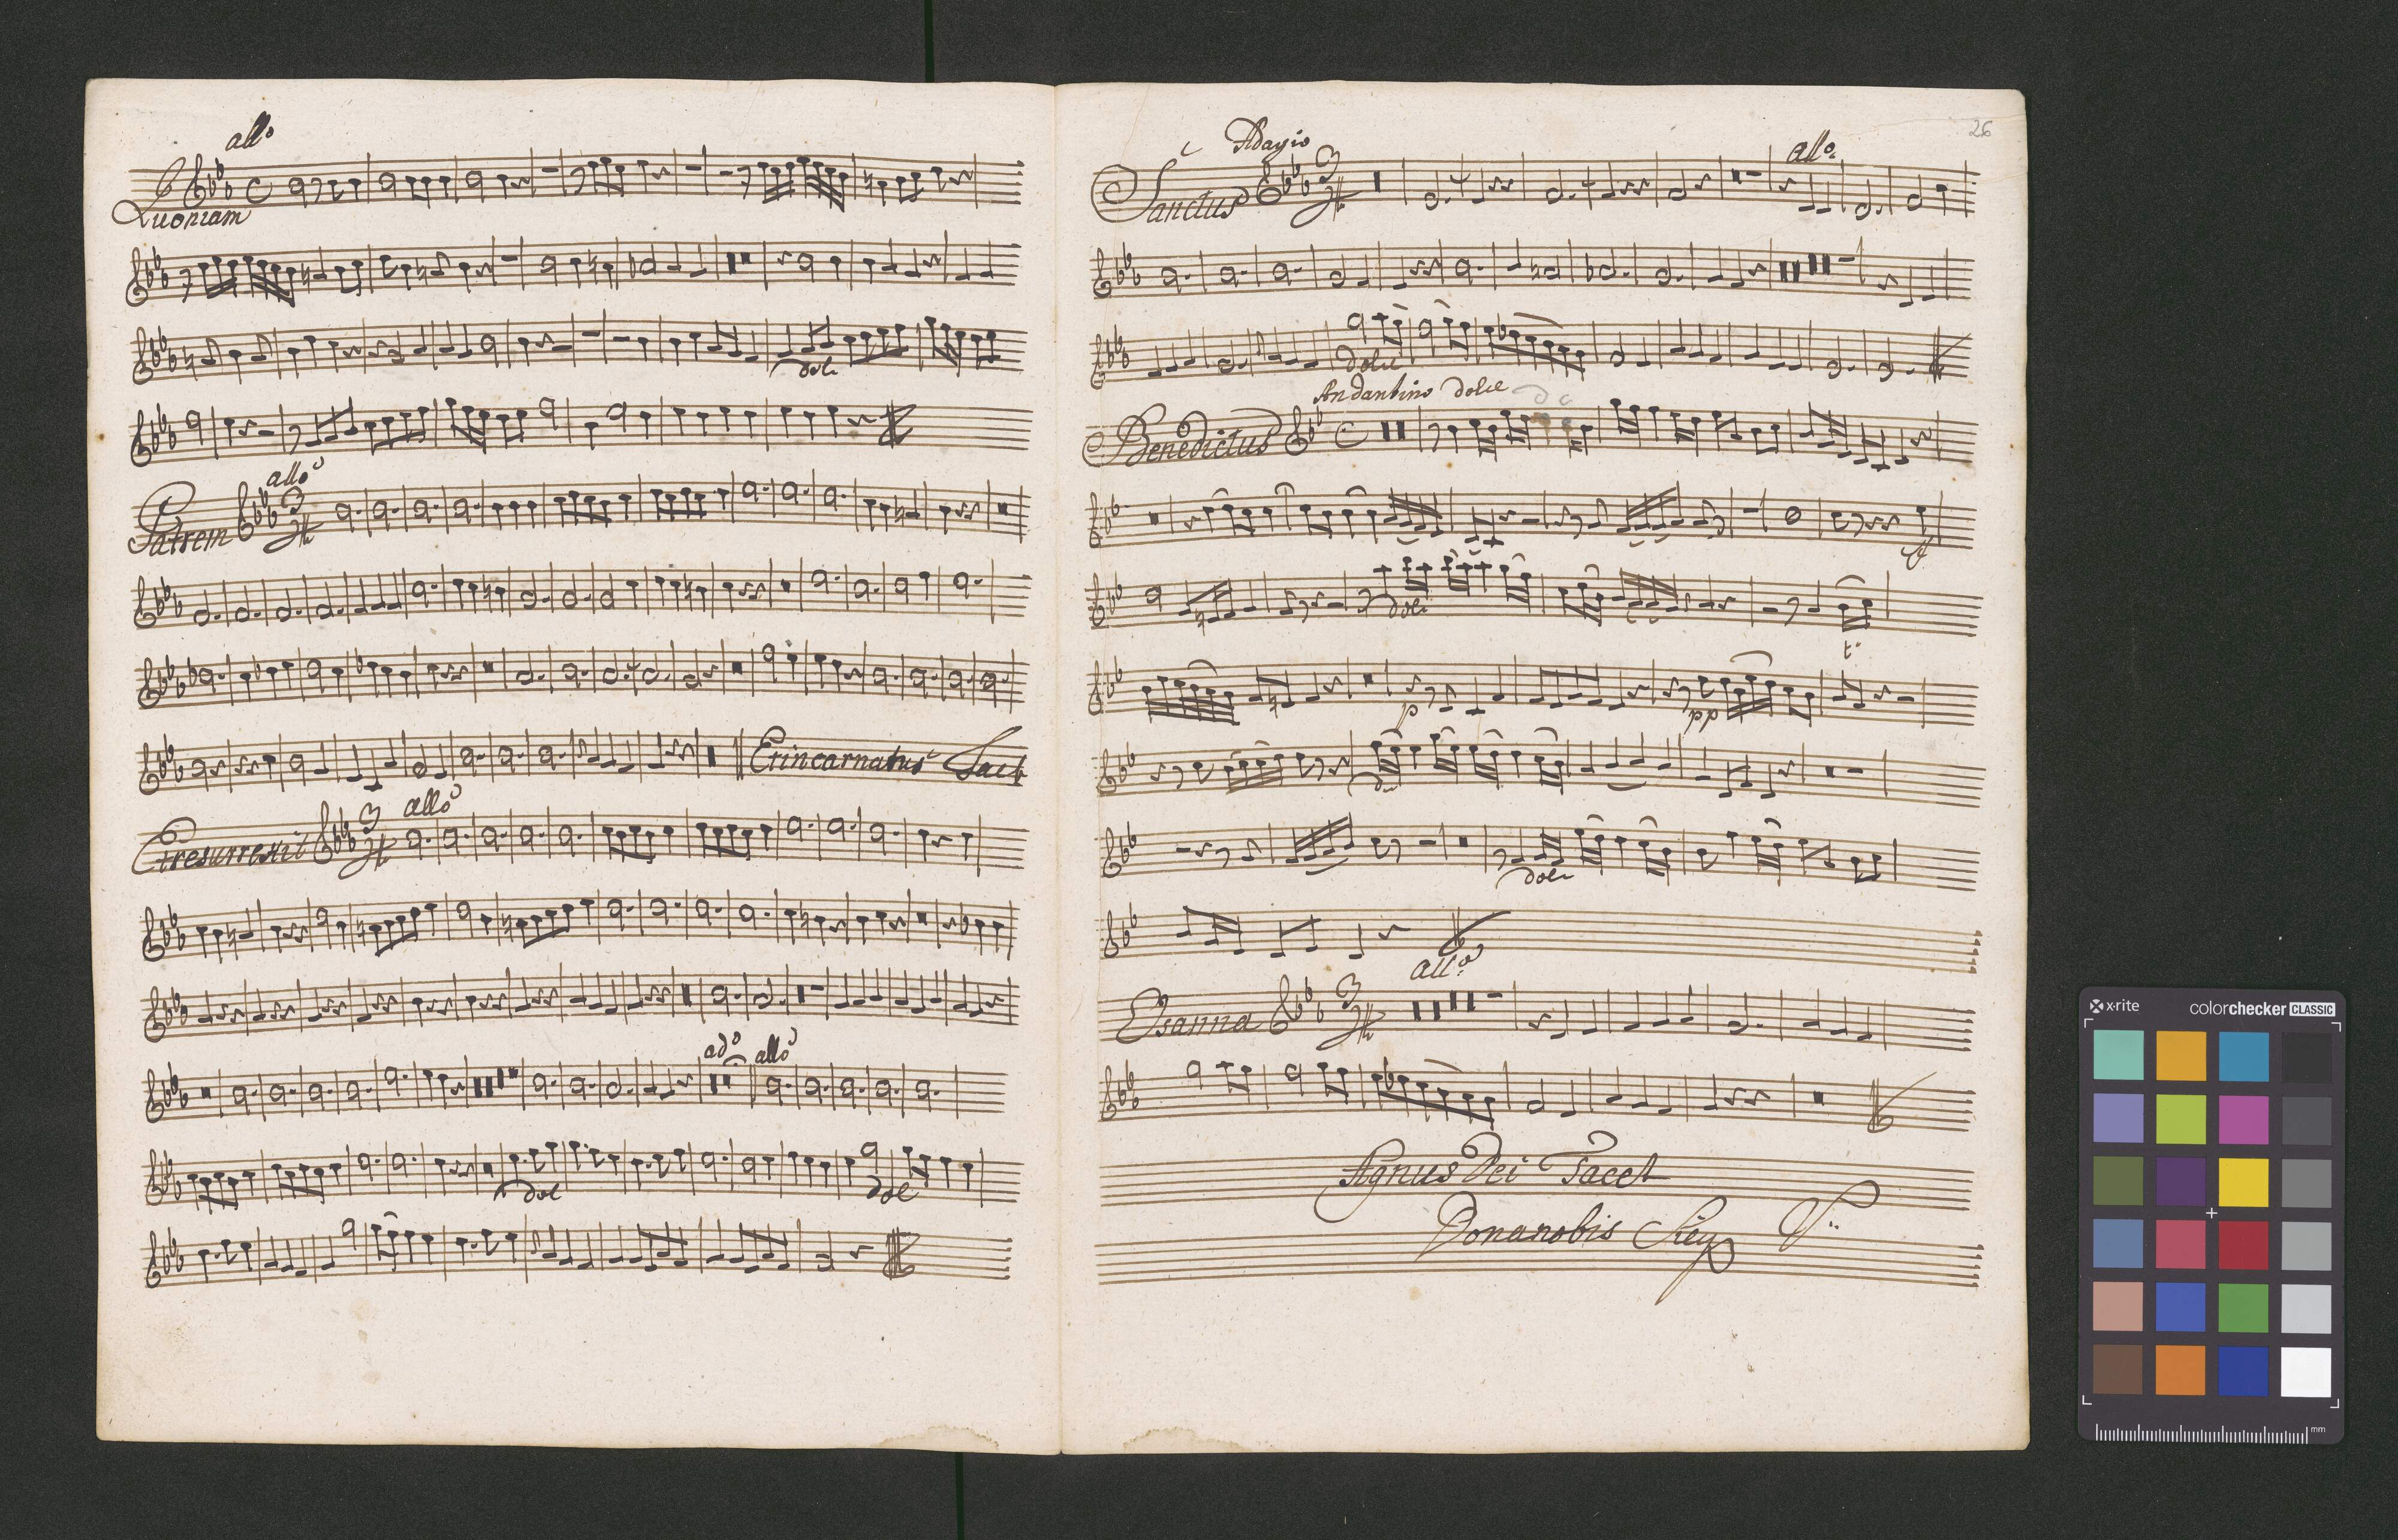 allo
Quoniam
dol:
allo
Patrem
Etincarnatus Tacet
allo
Etresurrexit
ado allo
dol dol
26
Adagio allo.
Sanctus
dolce
Andantino dolce
Benedictus
f
dol:
t:
p pp
dol:
allo
Osanna
Agnus Dei Tacet
Donanobis
x-rite colorchecker CLASSIC
mm